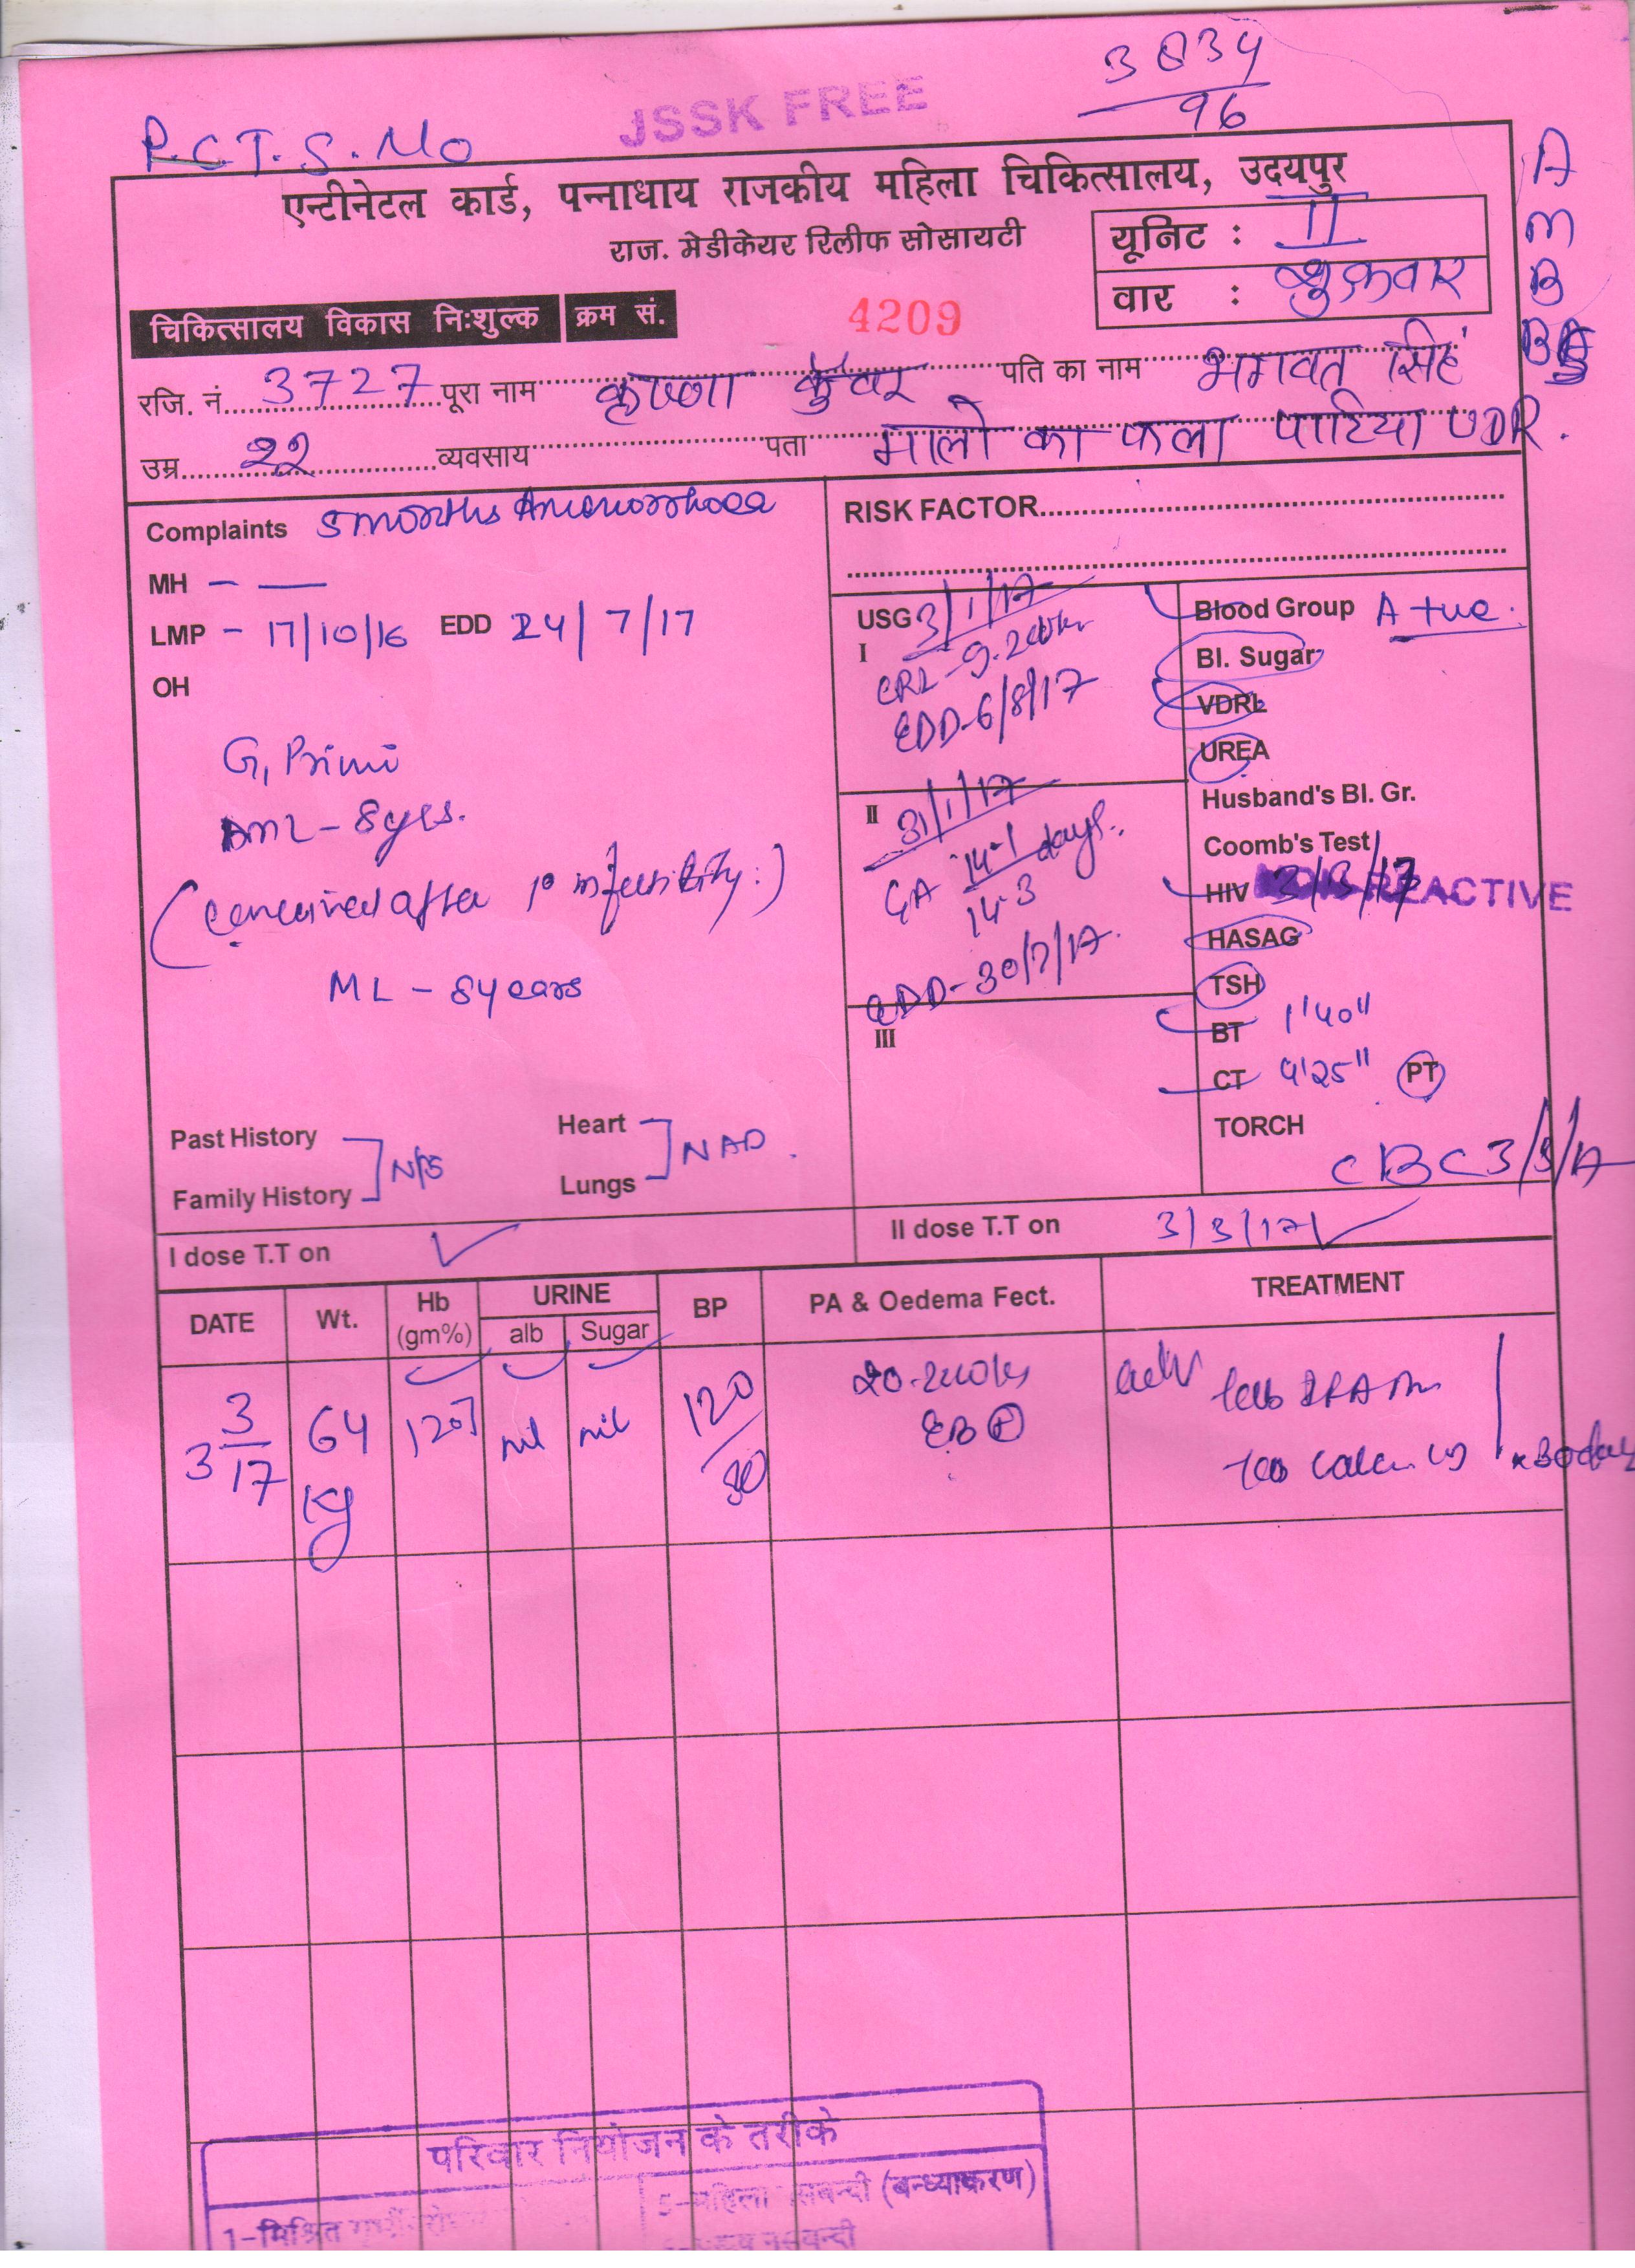 3834
96
P.C.T.S. No
JSSK FREE
एन्टीनेटल कार्ड, पन्नाधाय राजकीय महिला चिकित्सालय, उदयपुर
राज. मेडीकेयर रिलीफ सोसायटी
यूनिट : II
वार : शुक्रवार
A
M
B
चिकित्सालय विकास निःशुल्क क्रम सं. 4209
रजि. नं. 3727 पूरा नाम कृष्णा कुंवर पति का नाम भगवत सिहं
उम्र 22 व्यवसाय पता का फला UDR.
Complaints 5 months Amenorrhoea
RISK FACTOR
MH - —
LMP - 17/10/16 EDD 24/7/17
OH
G, Primi
8 yrs.
(conceived after 1° infertility:)
ML - 8 years
USG 3/1/17
I
CRL - 9.2 wks
EDD - 6/8/17
II 31/1/17
GA 14-1 days
14-3
EDD - 30/7/17
III
Blood Group A +ve
Bl. Sugar
VDRL
UREA
Husband's Bl. Gr.
Coomb's Test
HIV 3/3/17 NON REACTIVE
HASAG
TSH
BT 1'40"
CT 4'25" PT
TORCH
CBC 3/3/17
Past History
Family History N/S
Heart
Lungs NAD.
I dose T.T on ✓ II dose T.T on 3/3/17 ✓
DATE Wt. Hb (gm%) URINE alb Sugar BP PA & Oedema Fect. TREATMENT
3/3/17 64 Kg nil nil 120 20-2 wks adv
x 30 days
परिवार नियोजन के तरीके
1-मिश्रित
(बन्ध्याकरण)